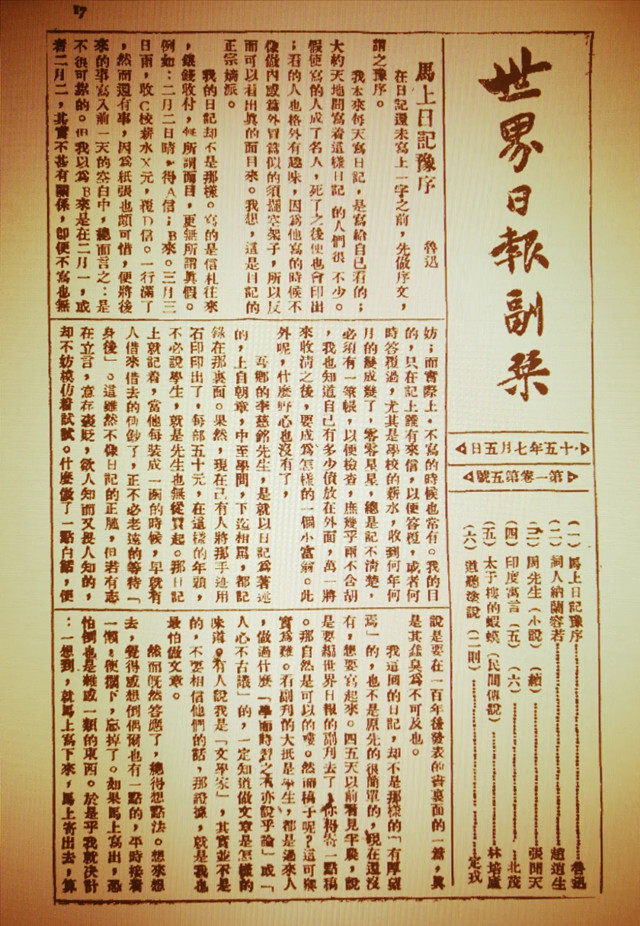 17
世界日報副栞
十五年七月五日
第一卷第五號
(一)馬上日記豫序……魯迅
(二)詞人納蘭容若……趙遵生
(三)周先生(小說)(續)……張開天
(四)印度寓言(五)(六)……北茂
(五)太子樓的蝦蟆(民間傳說)……林培廬
(六)道聽塗說(二則)……定戎
馬上日記豫序　魯迅
在日記還未寫上一字之前,先做序文,
謂之豫序。
我本來每天寫日記,是寫給自己看的;
大約天地間寫着這樣日記的人們很不少。
假使寫的人成了名人,死了之後便也會印出
;看的人也格外有趣味,因爲他寫的時候不
像做内感篇外冒篇似的須擺空架子,所以反
而可以看出眞的面目來。我想,這是日記的
正宗嫡派。
我的日記却不是那樣。寫的是信札往來
,銀錢收付,無所謂面目,更無所謂眞假。
例如:二月二日晴,得A信;B來。三月三
日雨,收C校薪水X元,復D信。一行滿了
,然而還有事,因爲紙張也頗可惜,便將後
來的事寫入前一天的空白中。總而言之:是
不很可靠的。但我以爲B來是在二月一,或
者二月二,其實不甚有關係,卽便不寫也無
妨;而實際上,不寫的時候也常有。我的目
的,只在記上誰有來信,以便答復,或者何
時答復過,尤其是學校的薪水,收到何年何
月的幾成幾了,零零星星,總是記不清楚,
必須有一筆帳,以便檢查,庶幾乎兩不含胡
,我也知道自己有多少債放在外面,萬一將
來收清之後,要成爲怎樣的一個小富翁。此
外呢,什麼野心也沒有了,
吾鄕的李慈銘先生,是就以日記爲著述
的,上自朝章,中至學問,下迄相罵,都記
錄在那裏面。果然,現在已有人將那手迹用
石印印出了,每部五十元,在這樣的年頭,
不必說學生,就是先生也無從買起。那日記
上就記着,當他每裝成一函的時候,早就有
人借來借去的傳鈔了,正不必老遠的等待「
身後」。這雖然不像日記的正脈,但若有志
在立言,意存褒貶,欲人知而又畏人知的,
却不妨模仿着試試。什麼做了一點白話,便
說是要在一百年後發表的書裏面的一篇,眞
是其蠢臭爲不可及也。
我這回的日記,却不是那樣的「有厚望
焉」的,也不是原先的很簡單的,現在還沒
有,想要寫起來。四五天以前看見半農,說
是要編世界日報的副刊去了,你得寄一點稿
。那自然是可以的喽。然而稿子呢?這可眞
實爲難。看副刊的大抵是學生,都是過來人
,做過什麼「學而時習之不亦說乎論」或「
人心不古議」的,一定知道做文章是怎樣的
味道。有人說我是「文學家」,其實並不是
的,不要相信他們的話,那證據,就是我也
最怕做文章。
然而旣然答應了,總得想點法。想來想
去,覺得感想倒偶爾也有一點的,平時接着
一懶,便擱下,忘掉了。如果馬上寫出,恐
怕倒也是雜感一類的東西。於是乎我就決計
:一想到,就馬上寫下來,馬上寄出去,算